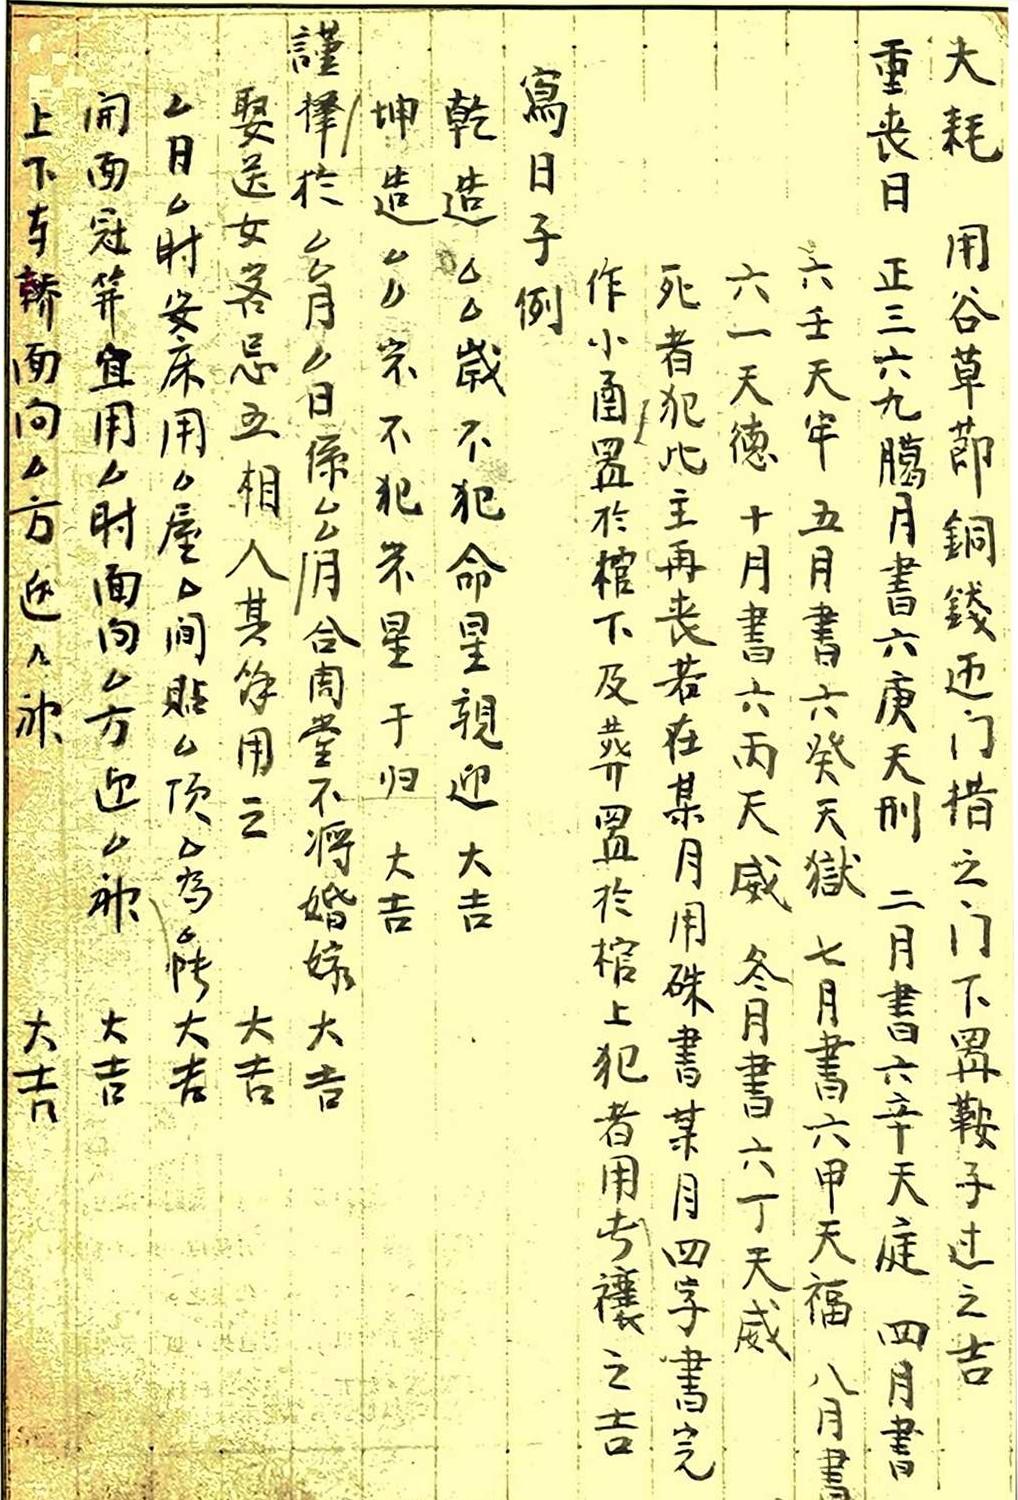 大耗 用谷草節銅錢迊门楷之门下置鞍子过之吉
重丧日 正三六九臈月書六庚天刑 二月書六辛天庭 四月書
六壬天牢 五月書六癸天獄 七月書六甲天福 八月書
六一天德 十月書六丙天威 冬月書六丁天威
死者犯此主再丧若在某月用硃書某月四字書完
作小凾置於棺下及葬置於棺上犯者用此禳之吉
寫日子例
乾造 厶厶歲不犯命星親迎 大吉
坤造 厶厶岁不犯岁星于归 大吉
謹擇於厶厶月厶日係厶厶月合周堂不将婚嫁 大吉
娶送女客忌五相人其馀用之 大吉
厶日厶时安床用厶屋厶间贴厶顶厶為厶帐 大吉
開面冠笄宜用厶时面向厶方迎厶神 大吉
上下车轎面向厶方迎厶神 大吉